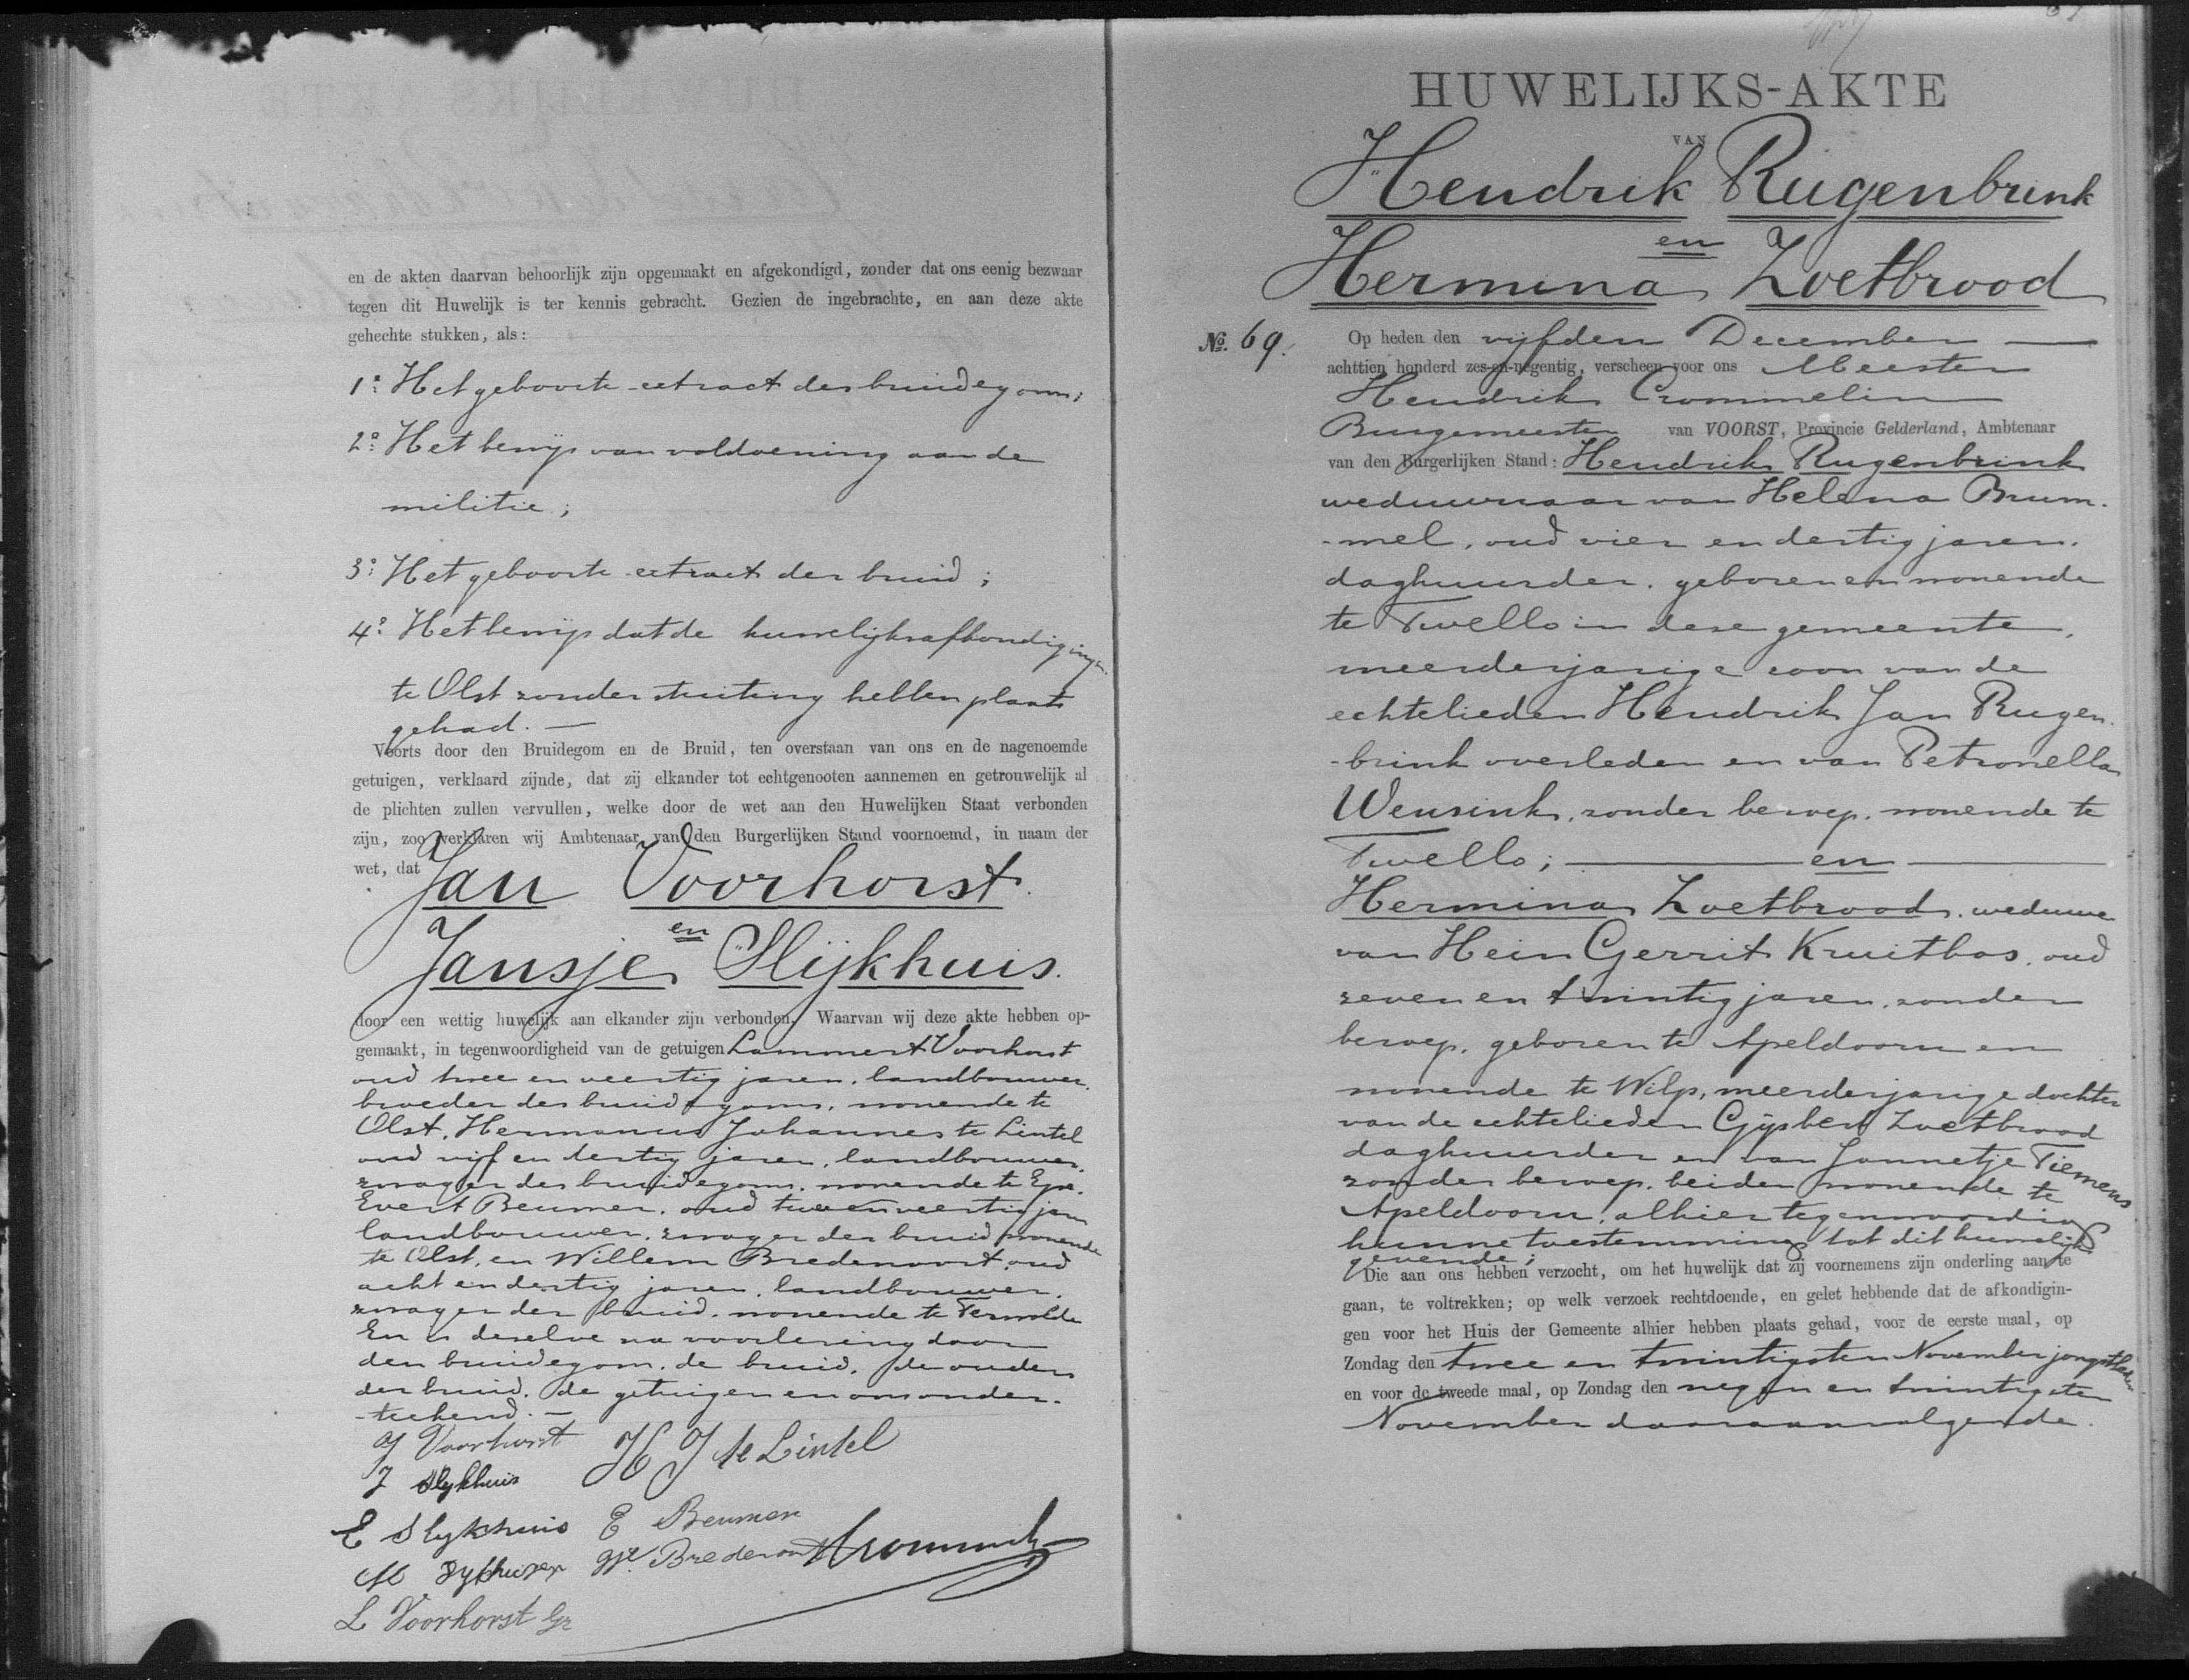 en de akten daarvan behoorlijk zijn opgemaakt en afgekondigd, zonder dat ons eenig bezwaar
tegen dit Huwelijk is ter kennis gebracht. Gezien de ingebrachte, en aan deze akte
gehechte stukken, als:
1º. Het geboorte-extract des bruidegoms;
2º. Het bewijs van voldoening aan de
militie;
3º. Het geboorte-extract der bruid;
4º. Het bewijs dat de huwelijksafkondigingen
te Olst zonder stuiting hebben plaats
gehad. —
Voorts door den Bruidegom en de Bruid, ten overstaan van ons en de nagenoemde
getuigen, verklaard zijnde, dat zij elkander tot echtgenooten aannemen en getrouwelijk al
de plichten zullen vervullen, welke door de wet aan den Huwelijken Staat verbonden
zijn, zoo verklaren wij Ambtenaar van den Burgerlijken Stand voornoemd, in naam der
wet, dat
Jan Voorhorst
en
Jansje Slijkhuis.
door een wettig huwelijk aan elkander zijn verbonden. Waarvan wij deze akte hebben op-
gemaakt, in tegenwoordigheid van de getuigen Lammert Voorhorst
oud twee en veertig jaren, landbouwer,
broeder des bruidegoms, wonende te
Olst, Hermanus Johannes te Lintel
oud vijf en dertig jaren, landbouwer,
zwager des bruidegoms, wonende te Epe,
Evert Beumer, oud twee en veertig jaren
landbouwer, zwager der bruid wonende
te Olst, en Willem Bredenoort, oud
acht en dertig jaren, landbouwer,
zwager der bruid, wonende te Terwolde
En is deselve na voorlezing door
den bruidegom, de bruid, de ouders
der bruid, de getuigen en ons onder-
-teekend. —
J Voorhorst
H J te Lintel
J Slykhuis
E Slykhuis
E Beumer
M
Bredenoort
HCrommelin
L Voorhorst Gz
HUWELIJKS-AKTE
VAN
Hendrik Rugenbrink
en
Hermina Zoetbrood
No. 69.
Op heden den vijfden December —
achttien honderd zes-en-negentig, verscheen voor ons Meester
Hendrik Crommelin
Burgemeester van VOORST, Provincie Gelderland, Ambtenaar
van den Burgerlijken Stand: Hendrik Rugenbrink
weduwnaar van Helena Brum-
-mel, oud vier en dertig jaren,
daghuurder, geboren en wonende
te Twello in deze gemeente,
meerderjarige zoon van de
echtelieden Hendrik Jan Rugen-
-brink overleden en van Petronella
Wensink, zonder beroep, wonende te
Twello; — en —
Hermina Zoetbrood, weduwe
van Hein Gerrit Kruitbos, oud
zeven en twintig jaren, zonder
beroep, geboren te Apeldoorn en
wonende te Wilp, meerderjarige dochter
van de echtelieden Gijsbert Zoetbrood
daghuurder en van Jannetje Tiemens
zonder beroep, beiden wonende te
Apeldoorn, alhier tegenwoordig
hunne toestemming tot dit huwelijk
gevende;
Die aan ons hebben verzocht, om het huwelijk dat zij voornemens zijn onderling aan te
gaan, te voltrekken; op welk verzoek rechtdoende, en gelet hebbende dat de afkondigin-
gen voor het Huis der Gemeente alhier hebben plaats gehad, voor de eerste maal, op
Zondag den twee en twintigsten November jongstleden
en voor de tweede maal, op Zondag den negen en twintigsten
November daaraanvolgende.